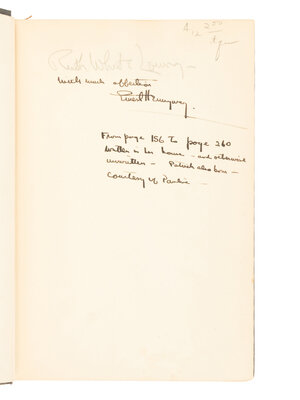 Ruth White Lowry
with much affection
Ernest Hemingway.
From page 156 to page 260
written in her house - and otherwise
unwritten - Patrick also born -
courtesy of Pauline -